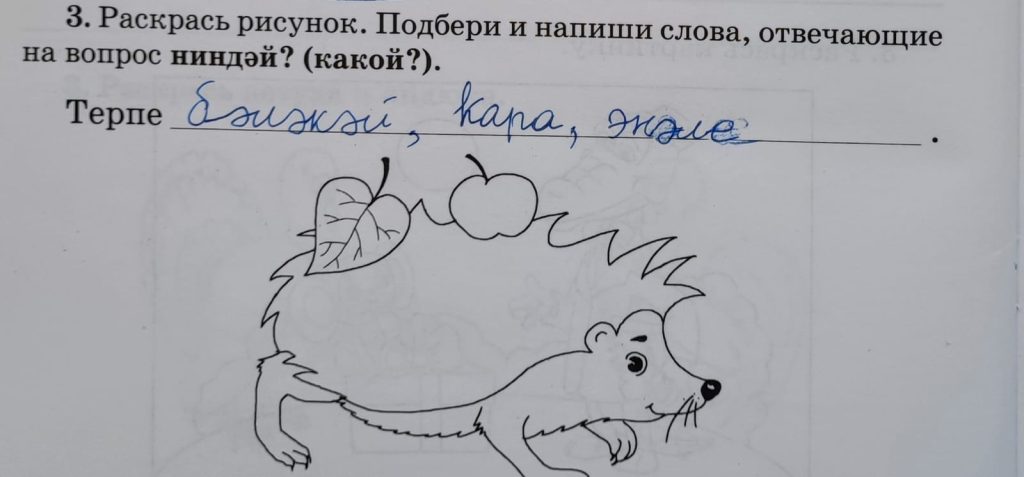 3. Раскрась рисунок. Подбери и напиши слова, отвечающие
на вопрос ниндәй? (какой?).
Терпе бәләкәй, кара, энәле.